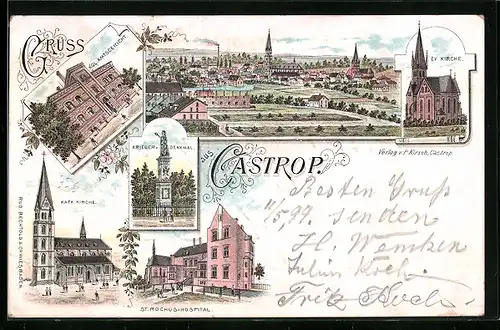 GRUSS
KGL. AMTSGERICHT.
EV. KIRCHE.
KRIEGER-DENKMAL.
aus
CASTROP.
Verlag v. F. Kirsch, Castrop.
KATH. KIRCHE.
ST. ROCHUS-HOSPITAL.
RUD. BECHTOLD & CO. WIESBADEN
Besten Gruß
11/5.99. senden
H. Wemken
Julius Koch.
Fritz Koch.